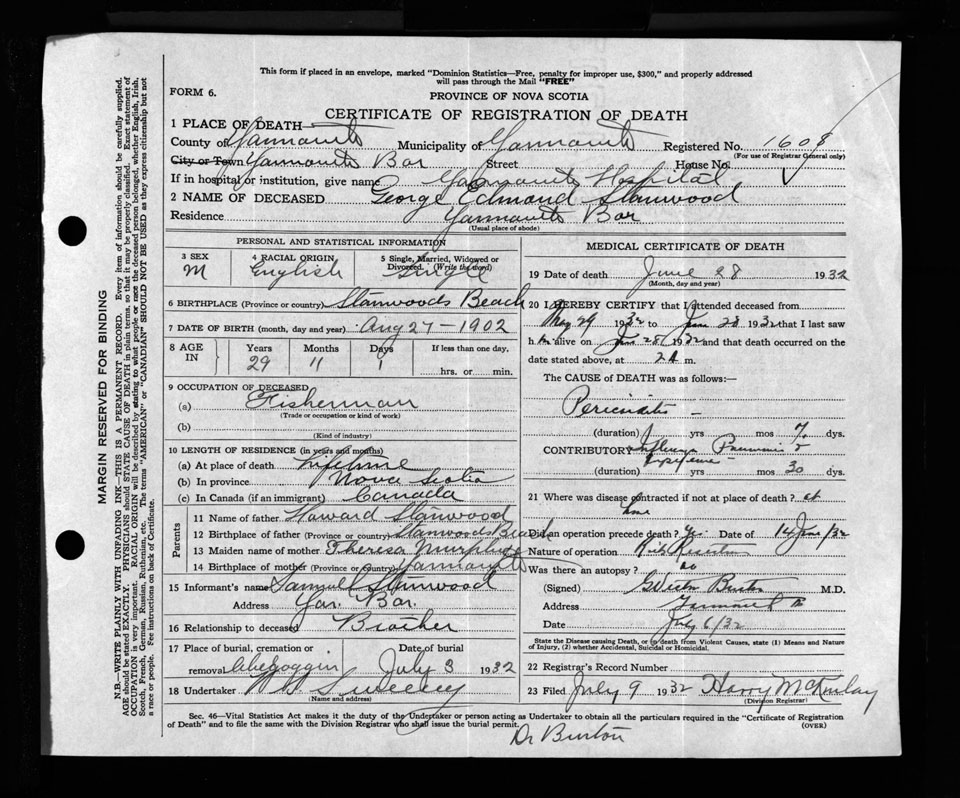 This form if placed in an envelope, marked "Dominion Statistics—Free, penalty for improper use, $300," and properly addressed
will pass through the Mail "FREE"
FORM 6.
PROVINCE OF NOVA SCOTIA
CERTIFICATE OF REGISTRATION OF DEATH
1 PLACE OF DEATH—
County of Yarmouth Municipality of Yarmouth Registered No. 1608
(For use of Registrar General only)
City or Town Yarmouth Bar Street House No.
If in hospital or institution, give name Yarmouth Hospital
2 NAME OF DECEASED George Edmand Stanwood
Residence Yarmouth Bar
(Usual place of abode)
PERSONAL AND STATISTICAL INFORMATION
3 SEX 4 RACIAL ORIGIN 5 Single, Married, Widowed or
Divorced. (Write the word)
M English Single
6 BIRTHPLACE (Province or country) Stanwoods Beach
7 DATE OF BIRTH (month, day and year) Aug 27 - 1902
8 AGE IN Years Months Days If less than one day,
29 11 1 hrs. or min.
9 OCCUPATION OF DECEASED
(a) Fisherman
(Trade or occupation or kind of work)
(b)
(Kind of industry)
10 LENGTH OF RESIDENCE (in years and months)
(a) At place of death Lifetime
(b) In province Nova Scotia
(c) In Canada (if an immigrant) Canada
Parents
11 Name of father Howard Stanwood
12 Birthplace of father (Province or country) Stanwoods Beach
13 Maiden name of mother Theresa Murphy
14 Birthplace of mother (Province or Country) Yarmouth
15 Informant's name Samuel Stanwood
Address Yar. Bar.
16 Relationship to deceased Brother
17 Place of burial, cremation or Date of burial
removal Cheboggin July 3 1932
18 Undertaker Sweeny
(Name and address)
MEDICAL CERTIFICATE OF DEATH
19 Date of death June 28 1932
(Month, day and year)
20 I HEREBY CERTIFY that I attended deceased from
May 29 1932 to June 28 1932 that I last saw
h im alive on June 28 1932 and that death occurred on the
date stated above, at 2 A m.
The CAUSE of DEATH was as follows:—
(duration) yrs mos 7 dys.
CONTRIBUTORY Influenza Pneumonia &
Empyema
(duration) yrs mos 30 dys.
21 Where was disease contracted if not at place of death? at
home
Did an operation precede death? Yes Date of 14 June/32
Nature of operation Rib Resection
Was there an autopsy? no
(Signed) Burton M.D.
Address Yarmouth
Date July 6/32
State the Disease causing Death, or in death from Violent Causes, state (1) Means and Nature
of Injury, (2) whether Accidental, Suicidal or Homicidal.
22 Registrar's Record Number
23 Filed July 9 1932 Harry McKinlay
(Division Registrar)
Sec. 46—Vital Statistics Act makes it the duty of the Undertaker or person acting as Undertaker to obtain all the particulars required in the "Certificate of Registration
of Death" and to file the same with the Division Registrar who shall issue the burial permit. (OVER)
Dr Burton
MARGIN RESERVED FOR BINDING
N.B.—WRITE PLAINLY WITH UNFADING INK—THIS IS A PERMANENT RECORD. Every item of information should be carefully supplied.
AGE should be stated EXACTLY. PHYSICIANS should STATE CAUSE OF DEATH in plain terms, so that it may be properly classified. Exact statement of
OCCUPATION is very important. RACIAL ORIGIN will be described by stating to what people or race the deceased person belonged, whether English, Irish,
Scotch, French, German, Russian, Ruthenian, etc. The terms "AMERICAN" or "CANADIAN" SHOULD NOT BE USED as they express citizenship but not
a race or people. Fee instructions on back of Certificate.